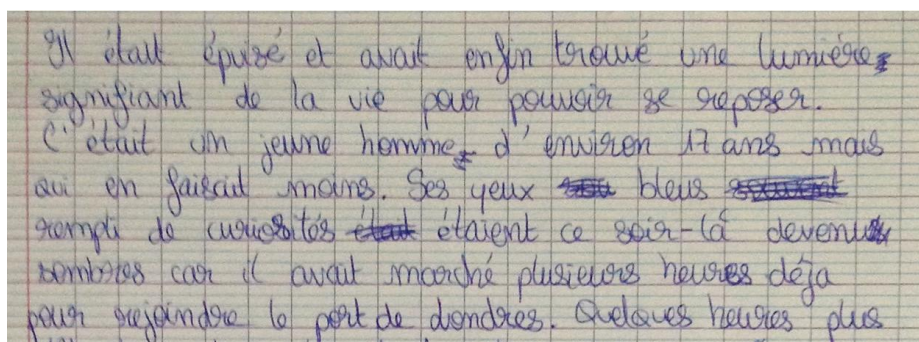 Il était épuisé et avait enfin trouvé une lumière,
signifiant de la vie pour pouvoir se reposer.
C'était un jeune homme, d'environ 17 ans mais
qui en faisait moins. Ses yeux bleus
rempli de curiosités étaient ce soir-là devenus
sombres car il avait marché plusieurs heures déja
pour rejoindre le port de Londres. Quelques heures plus